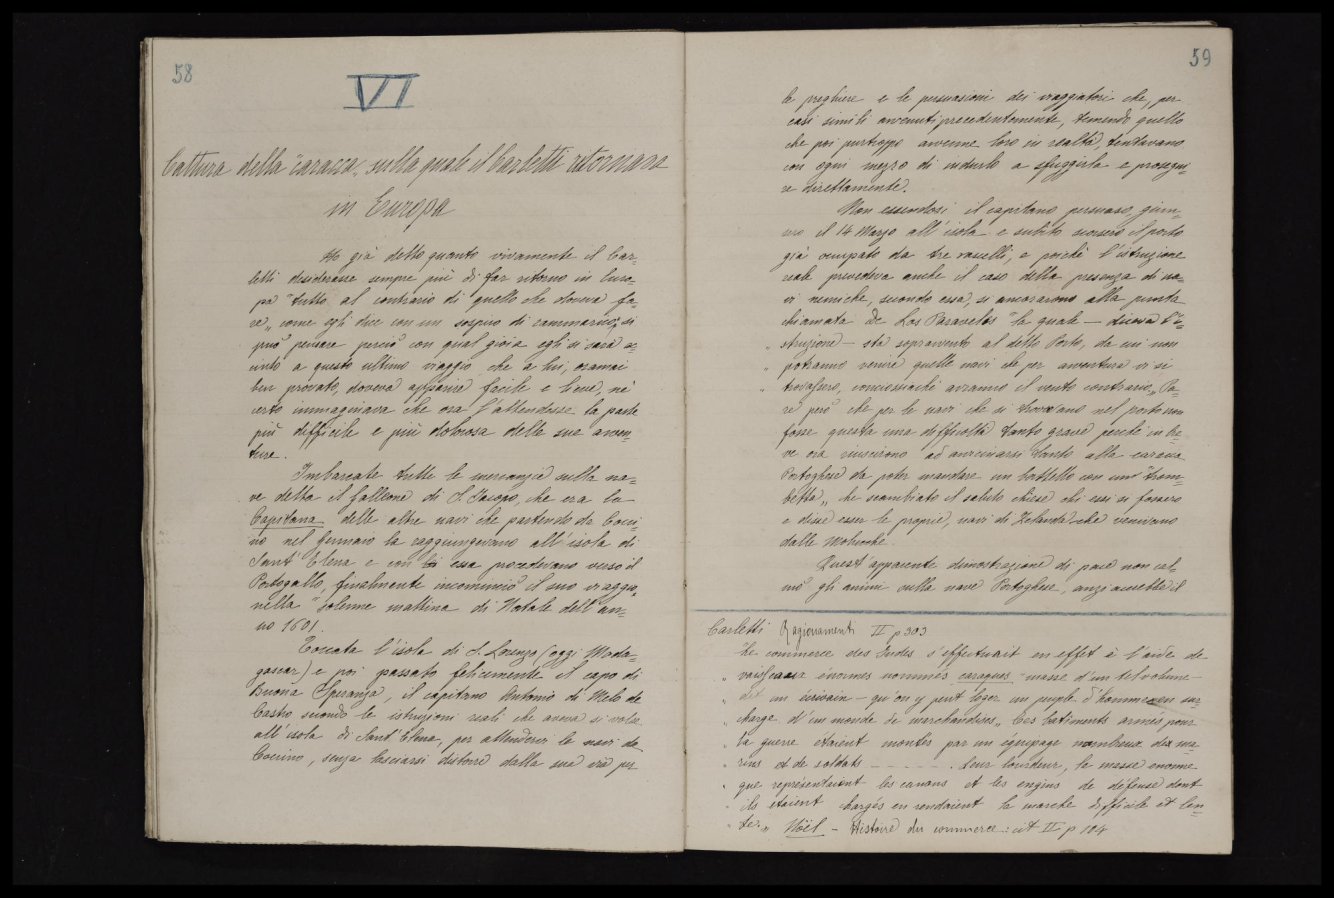 58
VI
Cattura della "caracca" sulla quale il Carletti ritornava
in Europa
Ho già detto quanto vivamente il Car=
letti desiderasse sempre più di far ritorno in Euro=
pa "tutto al contrario di quello che doveva fa=
re" come egli dice con un sospiro di rammarico; si
può pensare perciò con qual gioia egli si sarà ac=
cinto a questo ultimo viaggio che a lui, oramai
ben provato, doveva apparire facile e lieve, nè
certo immaginava che ora l'attendesse la parte
più difficile e più dolorosa delle sue avven=
ture.
Imbarcate tutte le mercanzie sulla na=
ve detta il galleone di S. Jacopo, che era la
Capitana delle altre navi che partendo da Cocci=
no nel gennaio la raggiungevano all'isola di
Sant'Elena e con essa procedevano verso il
Portogallo, finalmente incominciò il suo viaggio
nella "solenne mattina di Natale dell'an=
no 1601.
Toccata l'isola di S. Lorenzo (oggi Mada=
gascar) e poi passato felicemente il capo di
Buona Speranza, il capitano Antonio di Melo de
Castro secondo le istruzioni reali che aveva si volse
all'isola di Sant'Elena, per attendervi le navi da
Coccino, senza lasciarsi distorre dalla sua via per
59
le preghiere e le persuasioni dei viaggiatori che, per
casi simili avvenuti precedentemente, temendo quello
che poi purtroppo avvenne loro in realtà, tentavano
con ogni mezzo di indurlo a sfuggirla e prosegui=
re direttamente.
Non essendosi il capitano persuaso, giun=
sero il 14 Marzo all'isola e subito scorsero il porto
già occupato da tre vaselli, e poichè l'istruzione
reale prevedeva anche il caso della presenza di na=
vi nemiche, secondo essa, si ancorarono alla punta
chiamata de Los Paravelos "la quale — diceva l'i=
" struzione — sta sopravento al detto Porto, da cui non
" potranno venire quelle navi che per avventura vi si
" trovassero, conciossiachè avranno il vento contrario„ Pa=
re però che per le navi che si trovavano nel porto non
fosse questa una difficoltà tanto grave perchè in bre=
ve ora riuscirono ad avvicinarsi tanto alla caracca
Portoghese da poter mandare un battello con un "trom=
betta„ che scambiato il saluto chiese chi essi si fossero
e disse esser le proprie, navi di Zelanda che venivano
dalle Molucche.
Quest'apparente dimostrazione di pace non cal=
mò gli animi sulla nave Portoghese, anzi accrebbe il
Carletti Ragionamenti II p 303
"Le commerce des Indes s'effectuait en effet à l'aide de
" vaisseaux énormes nommés caraques "masse d'un tel volume
" dit un écrivain — qu'on y peut loger un peuple d'hommes en sur=
" charge d'un monde de marchandises„ Ces batiments armés pour
" la guerre étaient montés par un équipage nombreux de ma=
" rins et de soldats - - - - - . Leur lourdeur, la masse enorme
" que représentaient les canons et les engins de défense dont
" ils étaient chargés en rendaient la marche difficile et len=
" te.„ Nöel - Histoire du commerce: cit II p 104